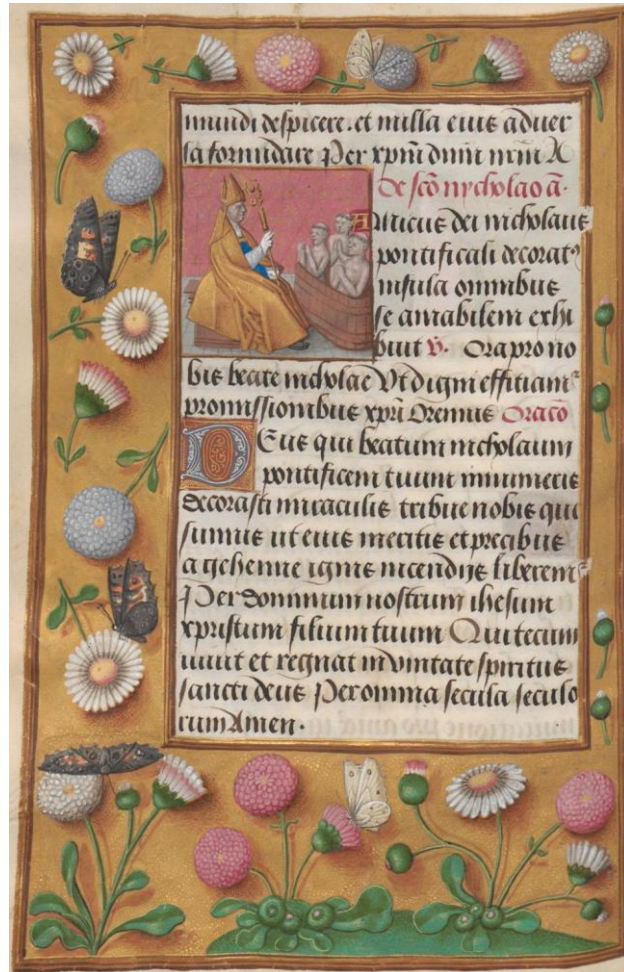 mundi despicere. et nulla eius aduer
sa formidare Per xpm dnm nrm A
De sco nycholao a.
Amicus dei nicholaus
pontificali decorat
infula omnibus
se amabilem exhi
buit v. Ora pro no
bis beate nicholae Vt digni efficiam
promissionibus xpi Oremus Oraco
Deus qui beatum nicholaum
pontificem tuum innumeris
decorasti miraculis tribue nobis que
sumus ut eius meritis et precibus
a gehenne ignis incendijs liberem
Per dominum nostrum ihesum
xpristum filium tuum Qui tecum
uiuit et regnat in vnitate spiritus
sancti deus Per omnia secula seculo
rum Amen.